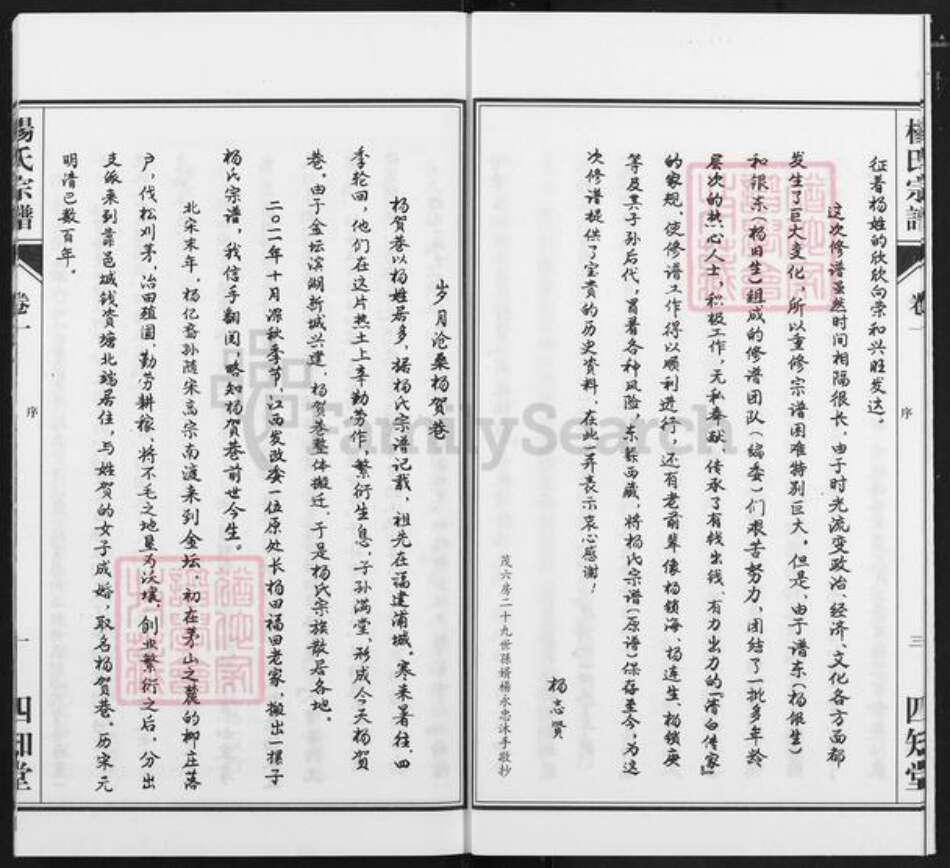 楊氏宗譜
卷一
序
三
四知堂
征着杨姓的欣欣向荣和兴旺发达。
这次修谱虽然时间相隔很长，由于时光流变政治、经济、文化各方面都
发生了巨大变化，所以重修宗谱困难特别巨大，但是，由于谱东（杨银生）
和银东（杨田生）组成的修谱团队（编委）们艰苦努力，团结了一批多年龄
层次的热心人士，积极工作，无私奉献，传承了有钱出钱、有力出力的『清白传家』
的家规，使修谱工作得以顺利进行，还有老前辈像杨锁海、杨连生、杨锁庚
等及其子孙后代，冒着各种风险，东躲西藏，将杨氏宗谱（原谱）保存至今，为这
次修谱提供了宝贵的历史资料，在此一并表示衷心感谢！
杨忠贤
茂六房二十九世孫婿楊永忠沐手敬抄
岁月沧桑杨贺巷
杨贺巷以杨姓居多，据杨氏宗谱记载，祖先在福建浦城。寒来暑往，四
季轮回，他们在这片热土上辛勤劳作，繁衍生息，子孙满堂，形成今天杨贺
巷。由于金坛滨湖新城兴建，杨贺巷整体搬迁，于是杨氏宗族散居各地。
二〇二一年十月深秋季节，江西发改委一位原处长杨田福回老家，搬出一摞子
杨氏宗谱，我信手翻阅，略知杨贺巷前世今生。
北宋末年，杨亿裔孙随宋高宗南渡来到金坛，初在茅山之麓的柳庄落
户，伐松刈茅，冶田殖圃，勤劳耕稼，将不毛之地垦为沃壤，创业繁衍之后，分出
支派来到靠邑城钱资塘北端居住，与姓贺的女子成婚，取名杨贺巷。历宋元
明清已数百年。
楊氏宗譜
卷一
序
一
四知堂
FamilySearch